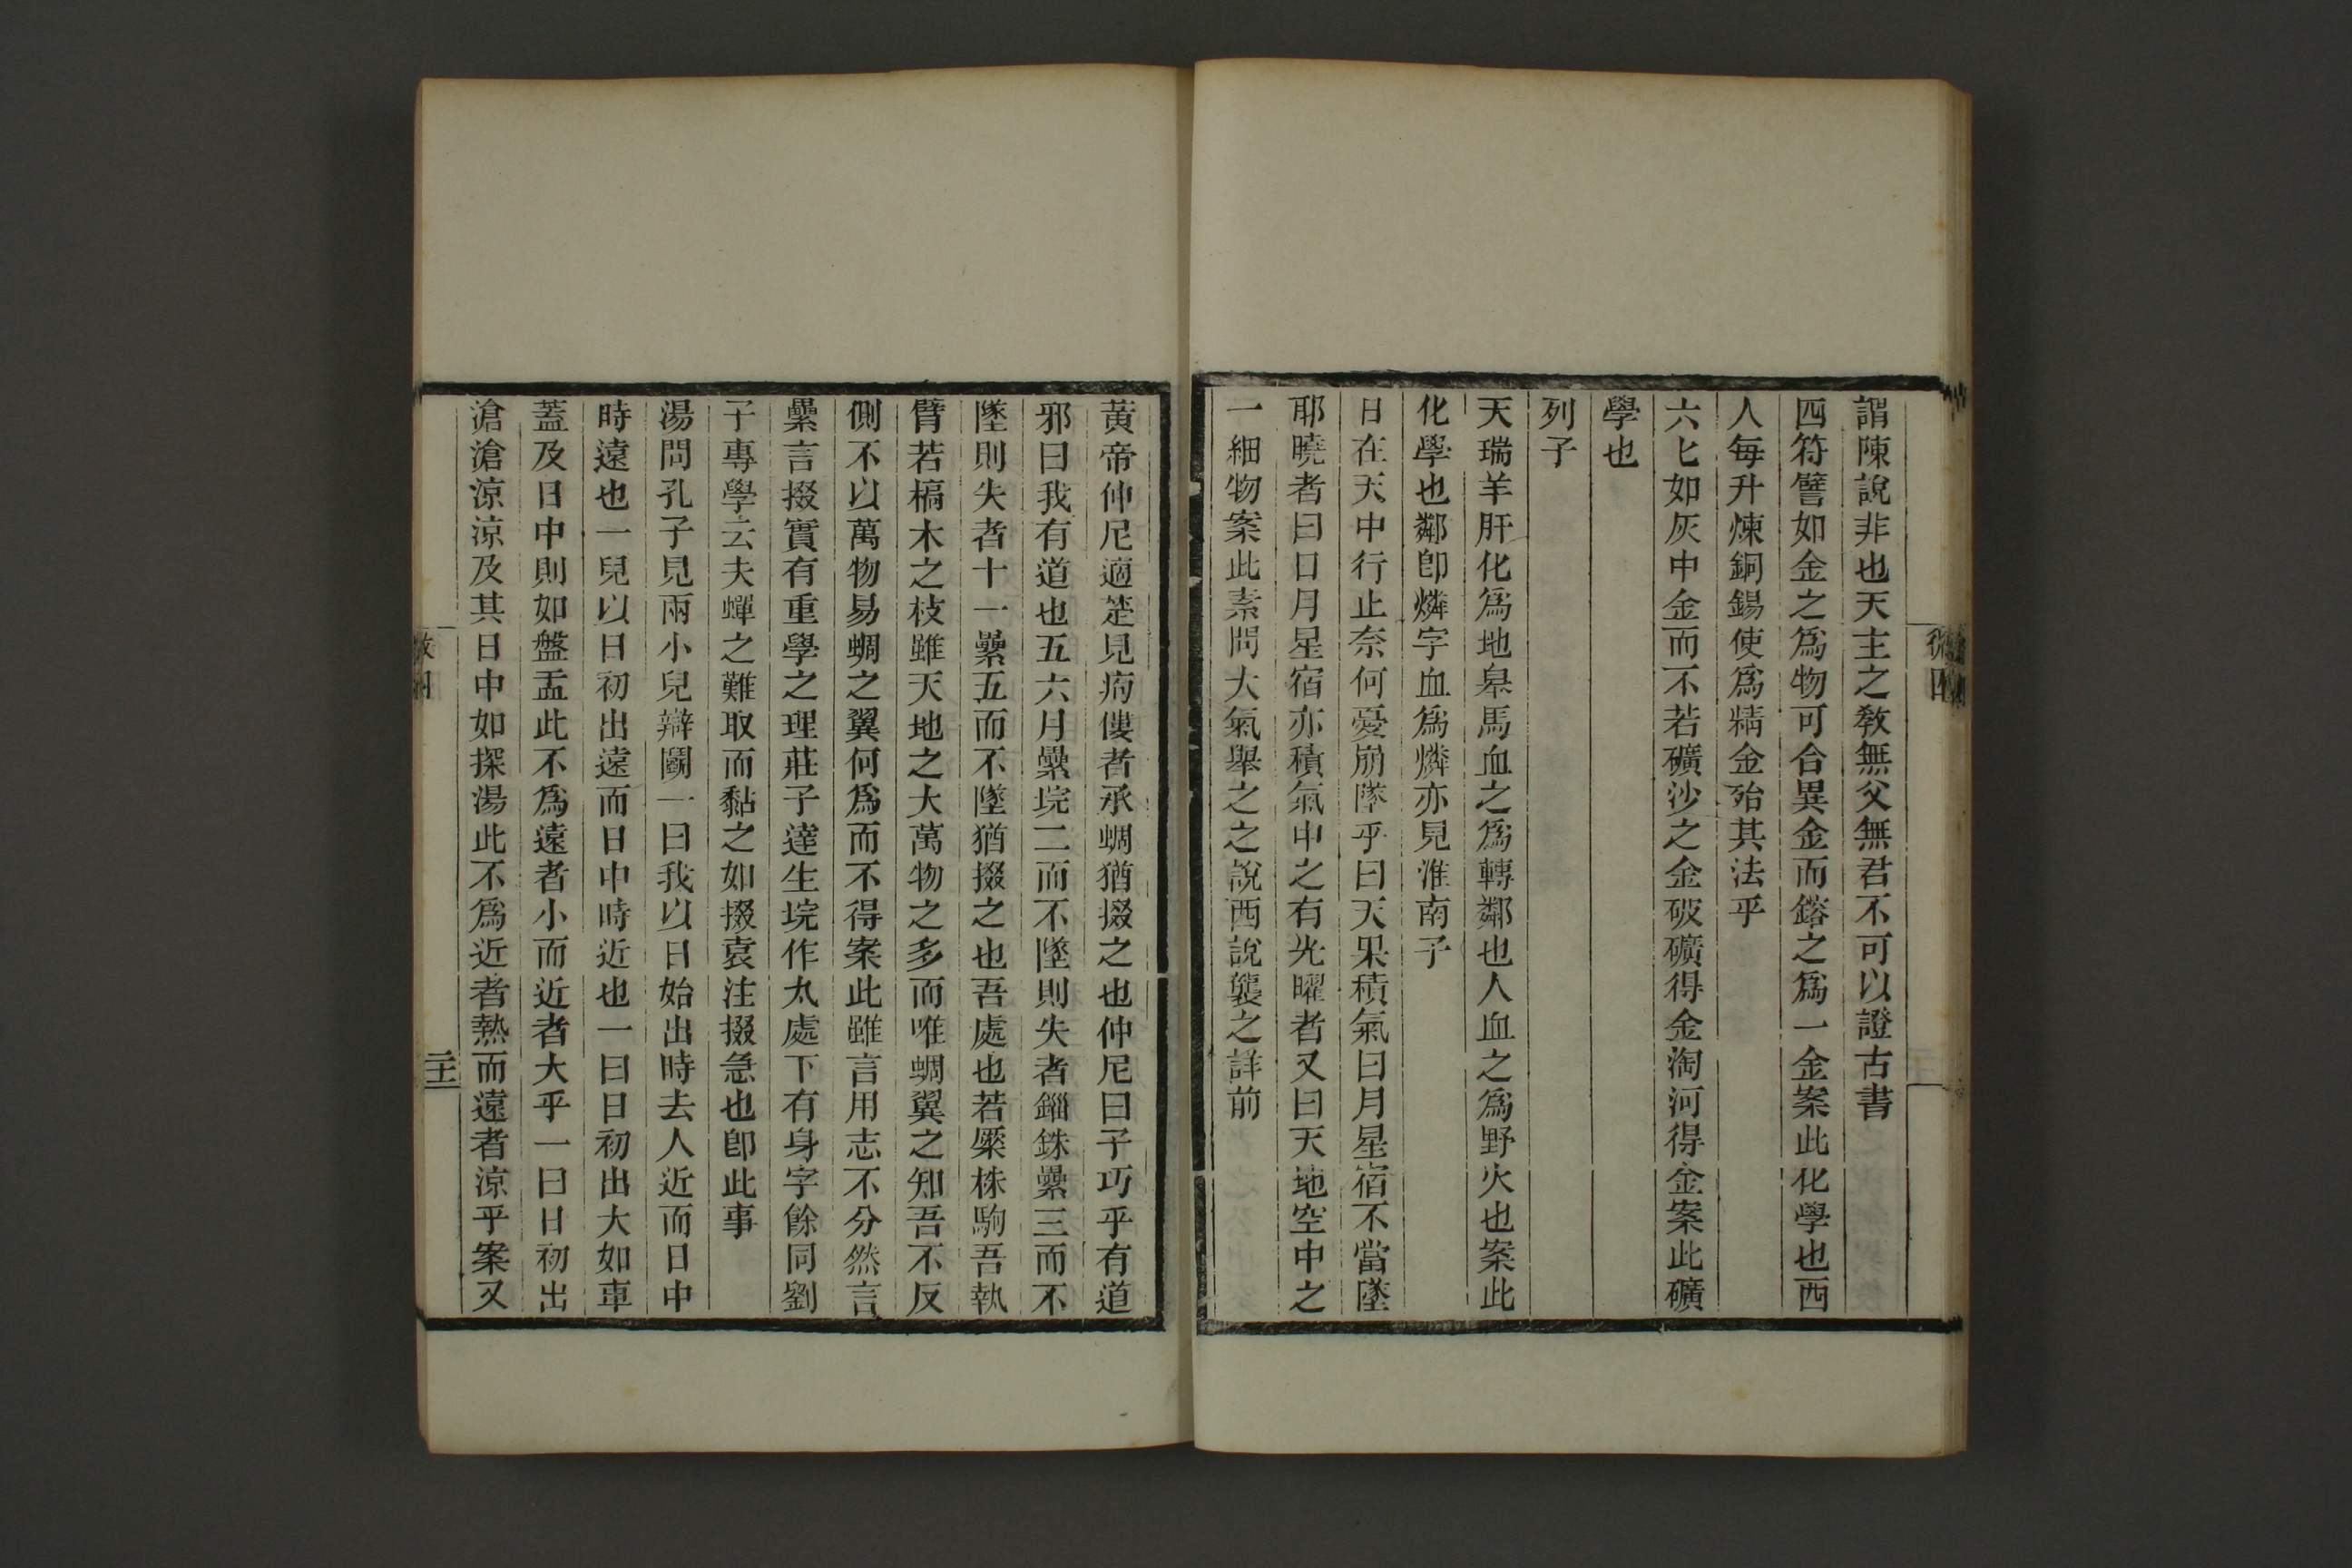 謂陳說非也天主之敎無父無君不可以證古書
四符譬如金之爲物可合異金而鎔之爲一金案此化學也西
人每升煉銅錫使爲精金殆其法乎
六匕如灰中金而不若礦沙之金破礦得金淘河得金案此礦
學也
列子
天瑞羊肝化爲地臯馬血之爲轉鄰也人血之爲野火也案此
化學也鄰卽燐字血爲燐亦見淮南子
日在天中行止奈何憂崩墜乎曰天果積氣日月星宿不當墜
耶曉者曰日月星宿亦積氣中之有光曜者又曰天地空中之
一細物案此素問大氣舉之之說西說襲之詳前
黃帝仲尼適楚見痀僂者承蜩猶掇之也仲尼曰子巧乎有道
邪曰我有道也五六月纍垸二而不墜則失者錙銖纍三而不
墜則失者十一纍五而不墜猶掇之也吾處也若橜株駒吾執
臂若槁木之枝雖天地之大萬物之多而唯蜩翼之知吾不反
側不以萬物易蜩之翼何爲而不得案此雖言用志不分然言
纍言掇實有重學之理莊子達生垸作丸處下有身字餘同劉
子專學云夫蟬之難取而黏之如掇袁注掇急也卽此事
湯問孔子見兩小兒辯鬭一曰我以日始出時去人近而日中
時遠也一兒以日初出遠而日中時近也一曰日初出大如車
蓋及日中則如盤盂此不爲遠者小而近者大乎一曰日初出
滄滄涼涼及其日中如探湯此不爲近者熱而遠者涼乎案又